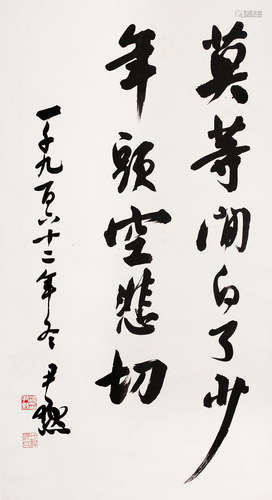 莫等閒白了少
年頭空悲切
一千九百六十二年冬 尹默